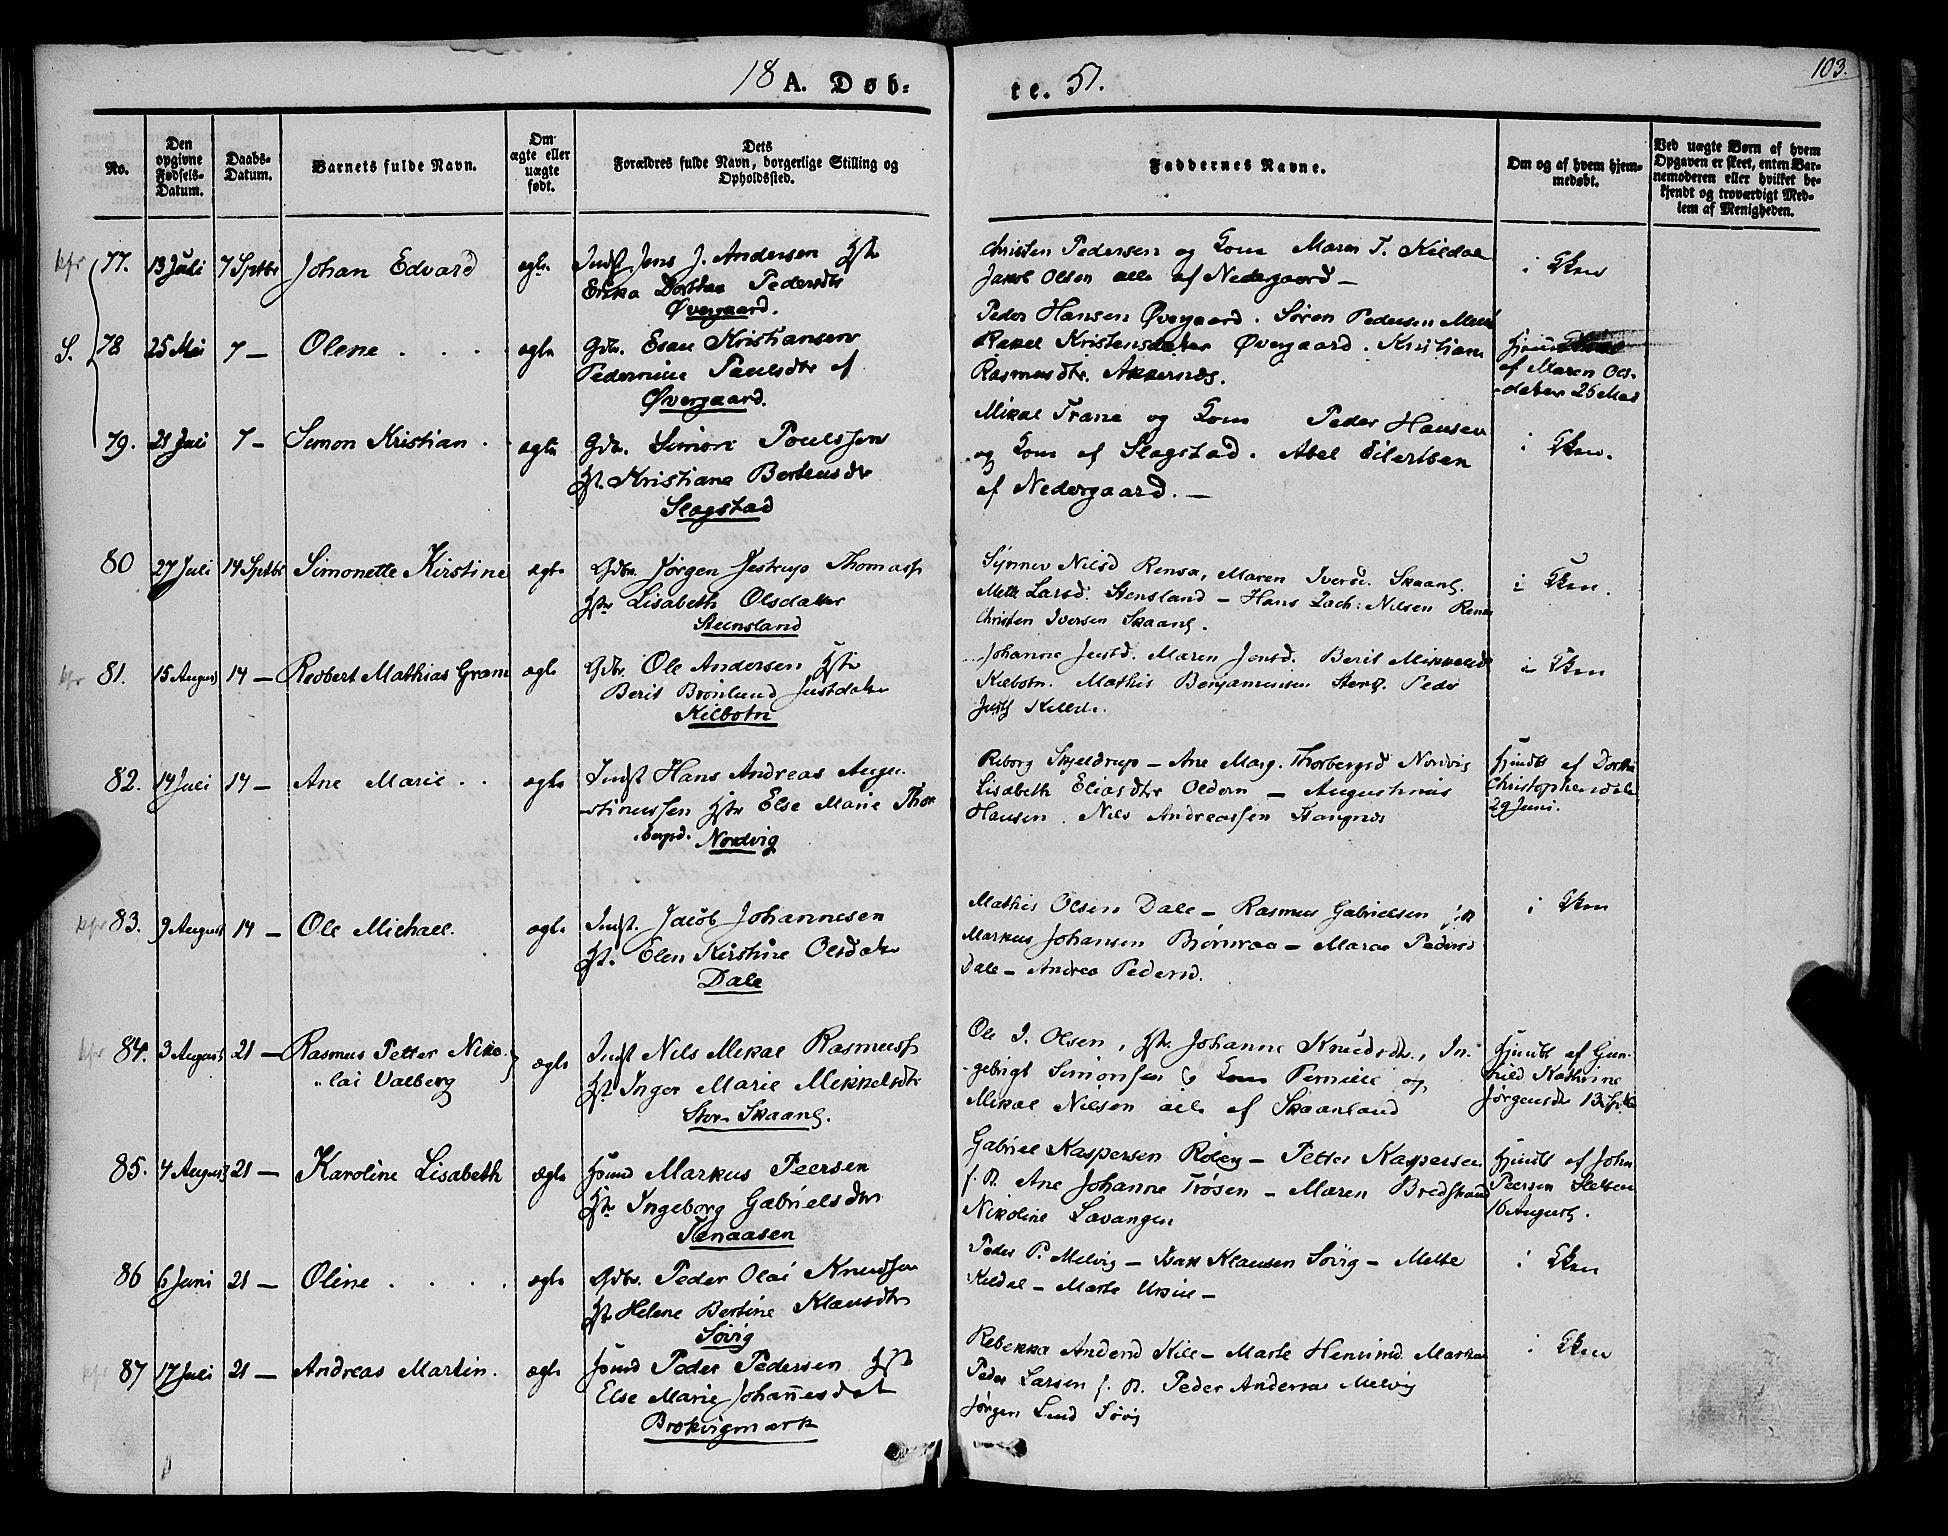 18 A. Døb:
te. 51.
103.
No.
Den opgivne Fødsels-Datum.
Daabs-Datum.
Barnets fulde Navn.
Om ægte eller uægte født.
Dets Forældres fulde Navn, borgerlige Stilling og Opholdssted.
Faddernes Navne.
Om og af hvem hjem-medøbt.
Ved uægte Børn af hvem Opgaven er skeet, enten Bar-nemoderen eller hvilket be-kjendt og troværdigt Med-lem af Menigheden.
77. 13 Juli 7 Septbr Johan Edvard ægte Indst Jens J. Andersen Hst
Erika Dorthea Pedersdtr
Øvergaard.
Christen Pedersen og Kone Maren T. Kildal
Jakob Olsen alle af Nedergaard —
i Kken
S. 78 25 Mai 7 — Olene . . . ægte Gdbr. Esau Kristiansen
Pedermine Paulsdtr af
Øvergaard.
Peder Hansen Øvergaard. Søren Pedersen Mels
Rakel Kristensdatter Øvergaard. Kristiane
Rasmusdtr. Aakernæs.
af Maren Ols-
-datter 25 Mai
79. 21 Juli 7 — Simon Kristian . ægte Gdbr. Simon Poulssen
Hst. Kristiane Bertheusdtr
Slagstad
Mikal Trane og Kone Peder Hansen
og Kone af Slagstad. Abel Eilertsen
af Nedergaard. —
i Kken.
80 27 Juli 14 Septbr Simonette Kirstine ægte Gdbr. Jørgen Jestrup Thomass.
Hst Lisabeth Olsdatter
Steensland
Synnev Nilsd Rensa, Maren Iversd. Skaanl.
Mette Larsd. Stensland — Hans Zach: Nilsen Rensa
Christen Iversen Skaanl.
i Kken.
81. 15 August 14 — Redbert Mathias Gram ægte Gdbr. Ole Andersen Hst
Berit Brønlund Justdatter
Kilbotn
Johanne Justd. Maren Jensd. Berit Mikkelsd
Kilbotn. Mathis Benjaminsen Stensl. Peder
i Kken
82. 14 Juli 14 — Ane Marie . . ægte Indst Hans Andreas Augu-
-stinussen Hst Else Marie Thor
-bergsd. Nordvig
Reborg Skjeldrup — Ane Marg. Thorbergsd Nordvig
Lisabeth Eliasdtr Oldern — Augustinus
Hansen. Nils Andreassen Stangnes
Hjmdbt af Dorthea
Christophersdatt
29 Juni.
83. 9 August 14 — Ole Michael. ægte Indst. Jacob Johannesen
Hst. Elen Kirstine Olsdatter
Dale
Mathis Olsen Dale — Rasmus Gabrielsen
Markus Johansen Bjørnraa — Maren Pedersd
Dale — Andrea Pedersd.
i Kken
84. 3 August 21 — Rasmus Petter Niko-
-lai Valberg
ægte Indst Nils Mikal Rasmuss.
Hst Inger Marie Mikkelsdtr
Stor-Skaanl.
Ole J. Olsen, Hst. Johanne Knudsdtr., In-
-gebrigt Simonsen & Kone Pernille og
Mikal Nilsen alle af Skaanland
Hjmdbt af Gun-
hild Kathrine
Jørgensdtr 13 Septbr
85. 4 August 21 — Karoline Lisabeth ægte Huusmd Markus Peersen
Hst Ingeborg Gabrielsdtr
Tenaasen
Gabriel Kaspersen Røleg — Petter Kaspersen
Ane Johanne Trøsen — Maren Bredstrand
Nikoline Lavangen
Hjmdbt af John
Peersen
16 August.
86 6 Juni 21 — Oline . . . . ægte Gdbr. Peder Olai Knudsen
Hst Helene Bertine Klausdtr
Søvig
Peder P. Melvig — Isak Klausen Søvig — Mette
Kildal — Marte
i Kken
87 17 Juli 21 — Andreas Martin. ægte Huusmd Peder Pedersen Hst
Else Marie Johannesdat
Brokvigmark
Rebekka Andersd Kile — Marte Henriksd.
Peder Larsen Peder Andersen Melvig
Jørgen Lund Søvig
i Kken